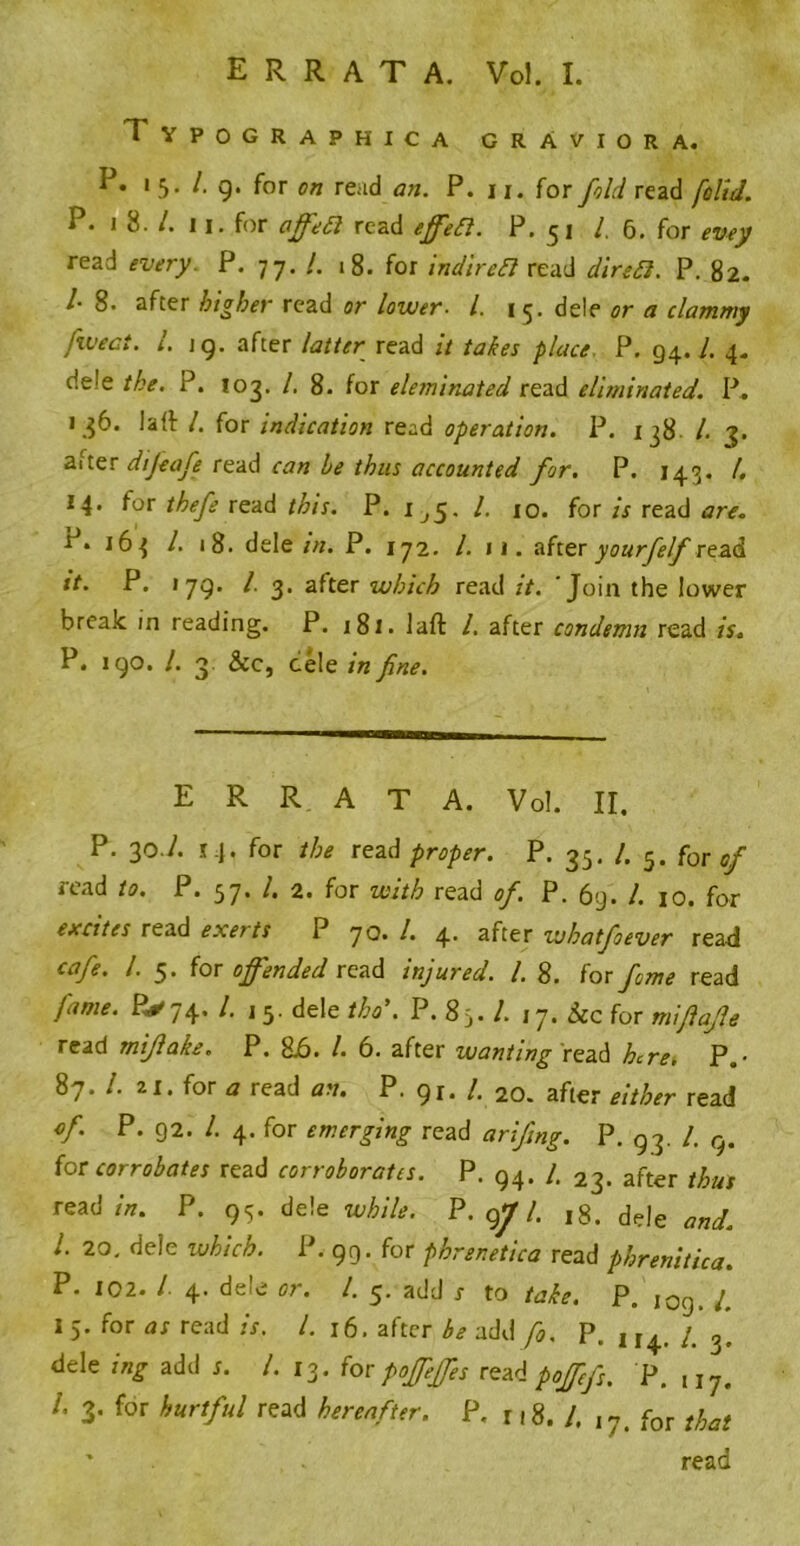 ERRATA. Vol. I.
TYPOGRAPHICA GRAVIORA.
P. 15. l. 9. for on read an. P. 11. for ſold read ſolid.
P. 18. l. 11. for affect read effect. P. 51 l. 6. for evey
read every. P. 77. l. 18. for indirect read direct. P. 82.
l. 8. after higher read or lower. l. 15. dele or a clammy
ſweat. l. 19. after latter read it takes place. P. 94. l. 4.
dele the. P. 103. l. 8. for eleminated read eliminated. P.
136. laſt l. for indication read operation. P. 138. l. 3.
after diſeaſe read can be thus accounted for. P. 143. l.
14. for theſe read this. P. 1 5. l. 10. for is read are.
P. 163 l. 18. dele in. P. 172. l. 11. after yourſelf read
it. P. 179. l. 3. after which read it. Join the lower
break in reading. P. 181. laſt l. after condemn read is.
P. 190. l. 3. &c, dele in fine.
ERRATA. Vol. II.
P. 30. l. 14. for the read proper. P. 35. l. 5. for of
read to. P. 57. l. 2. for with read of. P. 69. l. 10. for
excites read exerts P 70. l. 4. after whatſoever read
caſe. l. 5. for offended read injured. l. 8. for ſome read
ſame. P. 74. l. 15. dele tho'. P. 85. l. 17. &c for miſtaſte
read miſtake. P. 86. l. 6. after wanting read here. P.
87. l. 21. for a read an. P. 91. l. 20. after either read
of. P. 92. l. 4. for emerging read ariſing. P. 93. l. 9.
for corrobates read corroborates. P. 94. l. 23. after thus
read in. P. 95. dele while. P. 97 l. 18. dele and.
l. 20. dele which. P. 99. for phrenetica read phrenitica.
P. 102. l. 4. dele or. l. 5. add s to take. P. 109. l.
15. for as read is. l. 16. after be add ſo. P. 114. l. 3.
dele ing add s. l. 13. for poſſeſſes read poſſeſs. P. 117.
l. 3. for hurtful read hereafter. P. 118. l. 17. for that
read